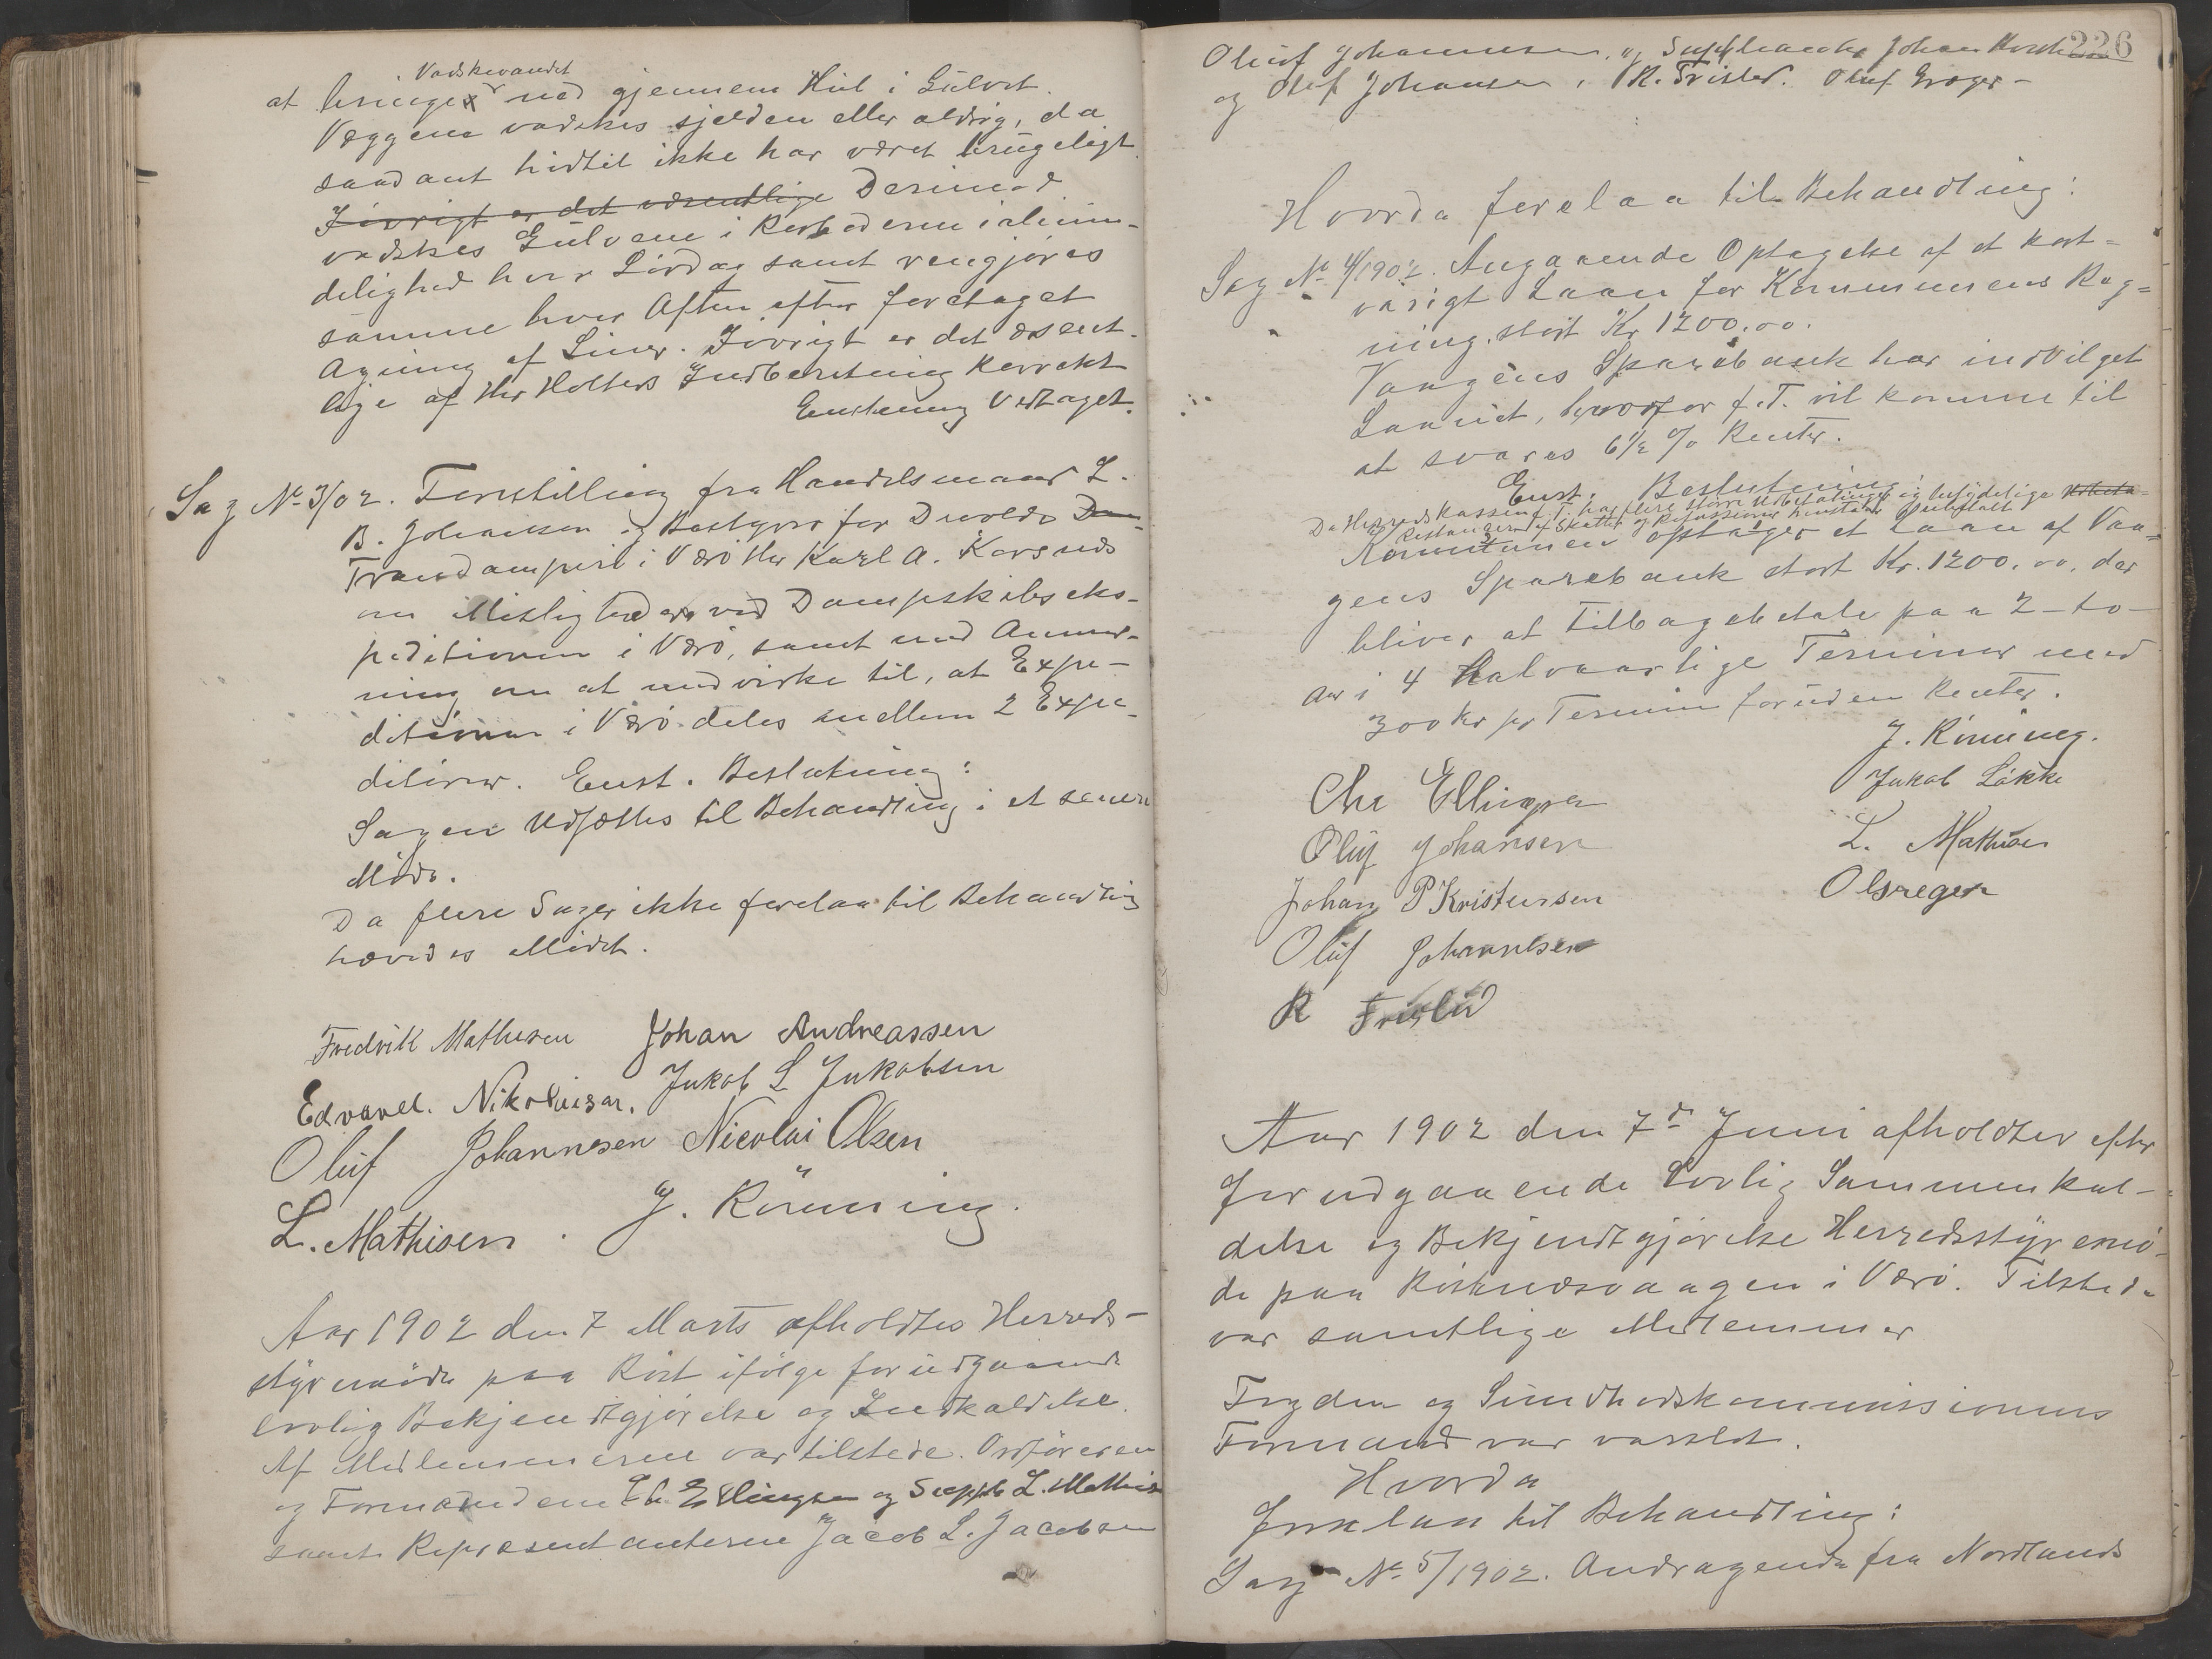 Vadskevandet
at bringer ned gjennem Hul i Gulvet.
Væggene vadskes sjelden eller aldrig, da
saadant hidtil ikke har været brugeligt.
Iøvrigt er det væsentlige Derimod
vadskes Gulvene i Rorboderne i almin-
delighed hver Lørdag samt rengjøres
samme hver Aften efter foretaget
Agning af Liner. Iøvrigt er det væsent-
lige af Hr Holters Indberetning korrekt
Enstemmig Vedtaget.
Sag No 3/02. Forestilling fra Handelsmand L.
B. Johansen og Bestyrer for Devolds Dam-
Trandamperi i Værø Hr Karl A. Korsnes
om Misligheder ved Dampskibseks-
peditionen i Værø, samt med Anmod-
ning om at medvirke til, at Expe-
ditionen i Værø deles mellem 2 Expe-
ditører. Enst. Beslutning:
Sagen udsættes til Behandling i et senere
Møde.
Da flere Sager ikke forelaa til Behandling
hævedes Mødet.
Fredrik Mathisen Johan Andreassen
Edvard. Nikolaisen. Jakob L Jakobsen
Oluf Johannesen Nicolai Olsen
L. Mathisen. J. Rønning.
Aar 1902 den 7 Marts afholdtes Herreds-
styremøde paa Røst ifølge forudgaaende
lovlig Bekjendtgjørelse og Indkaldelse.
Af Medlemmerne var tilstede. Ordføreren
og Formændene Chr. Ellingsen og Suppl. L. Mathisen
samt Repræsentanterne Jacob L. Jacobsen
226
Oluf Johannesen, og Suppleanter Johan Kristensen
og Oluf Johansen, R. Fristed. Oluf
Hvorda forelaa til Behandling:
Sag No 4/1902. Angaaende Optagelse af et kort-
varigt Laan for Kommunens Reg-
ning, stort Kr 1200.00.
Vaagens Sparebank har indvilget
Laanet, hvorfor f. T. vil komme til
at svares 6½ % Renter.
Enst. Beslutning:
Da Herredskassen f. T. har flere større Udbetalinger og betydelige
Restancer af Skatter og Refusioner henstaar ubetalt
Kommunen optager et Laan af Vaa-
gens Sparebank stort Kr. 1200.00, der
bliver at tilbagebetale paa 2 - to -
Aar i 4 halvaarlige Terminer med
300 Kr pr Termin foruden Renter.
J. Rønning.
Chr Ellingsen Jakob Løkke
Oluf Johansen L. Mathisen
Johan P Kristensen
Oluf Johannesen
R Fristed
Aar 1902 den 7de Juni afholdtes efter
forudgaaende Lovlig Sammenkal-
delse og Bekjendtgjørelse Herredsstyremø-
de paa Røstnesvaagen i Værø. Tilstede
var samtlige Medlemmer
Fogden og Sundhedskommissionens
Formand var varslet.
Hvorda
forelaa til Behandling:
Sag No 5/1902. Andragende fra Nordlands